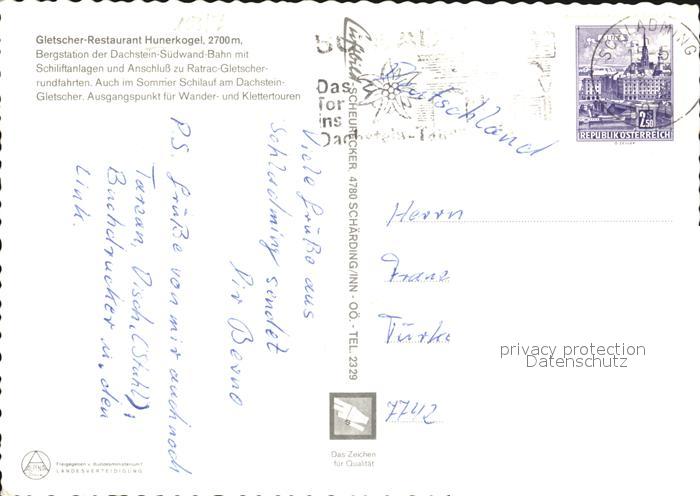 Gletscher-Restaurant Hunerkogel, 2700 m,
Bergstation der Dachstein-Südwand-Bahn mit
Schiliftanlagen und Anschluß zu Ratrac-Gletscher-
rundfahrten. Auch im Sommer Schilauf am Dachstein-
Gletscher. Ausgangspunkt für Wander- und Klettertouren
Das
Tor
ins
Dachstein-
SCHLADMING
2.50
REPUBLIK ÖSTERREICH
Deutschland
Viele Grüße aus
Schladming sendet
Dir Berno
P.S. Grüße von mir auch noch
Tarzan, Tisch, (Stuhl),
Buchdrucker u. den
Link.
Luftbild
SCHEURECKER 4780 SCHÄRDING/INN - OÖ. - TEL. 2329
Herrn
Franz
Türke
7742
privacy protection
Datenschutz
Das Zeichen
für Qualität
ALPINA
Freigegeben v. Bundesministerium f.
LANDESVERTEIDIGUNG